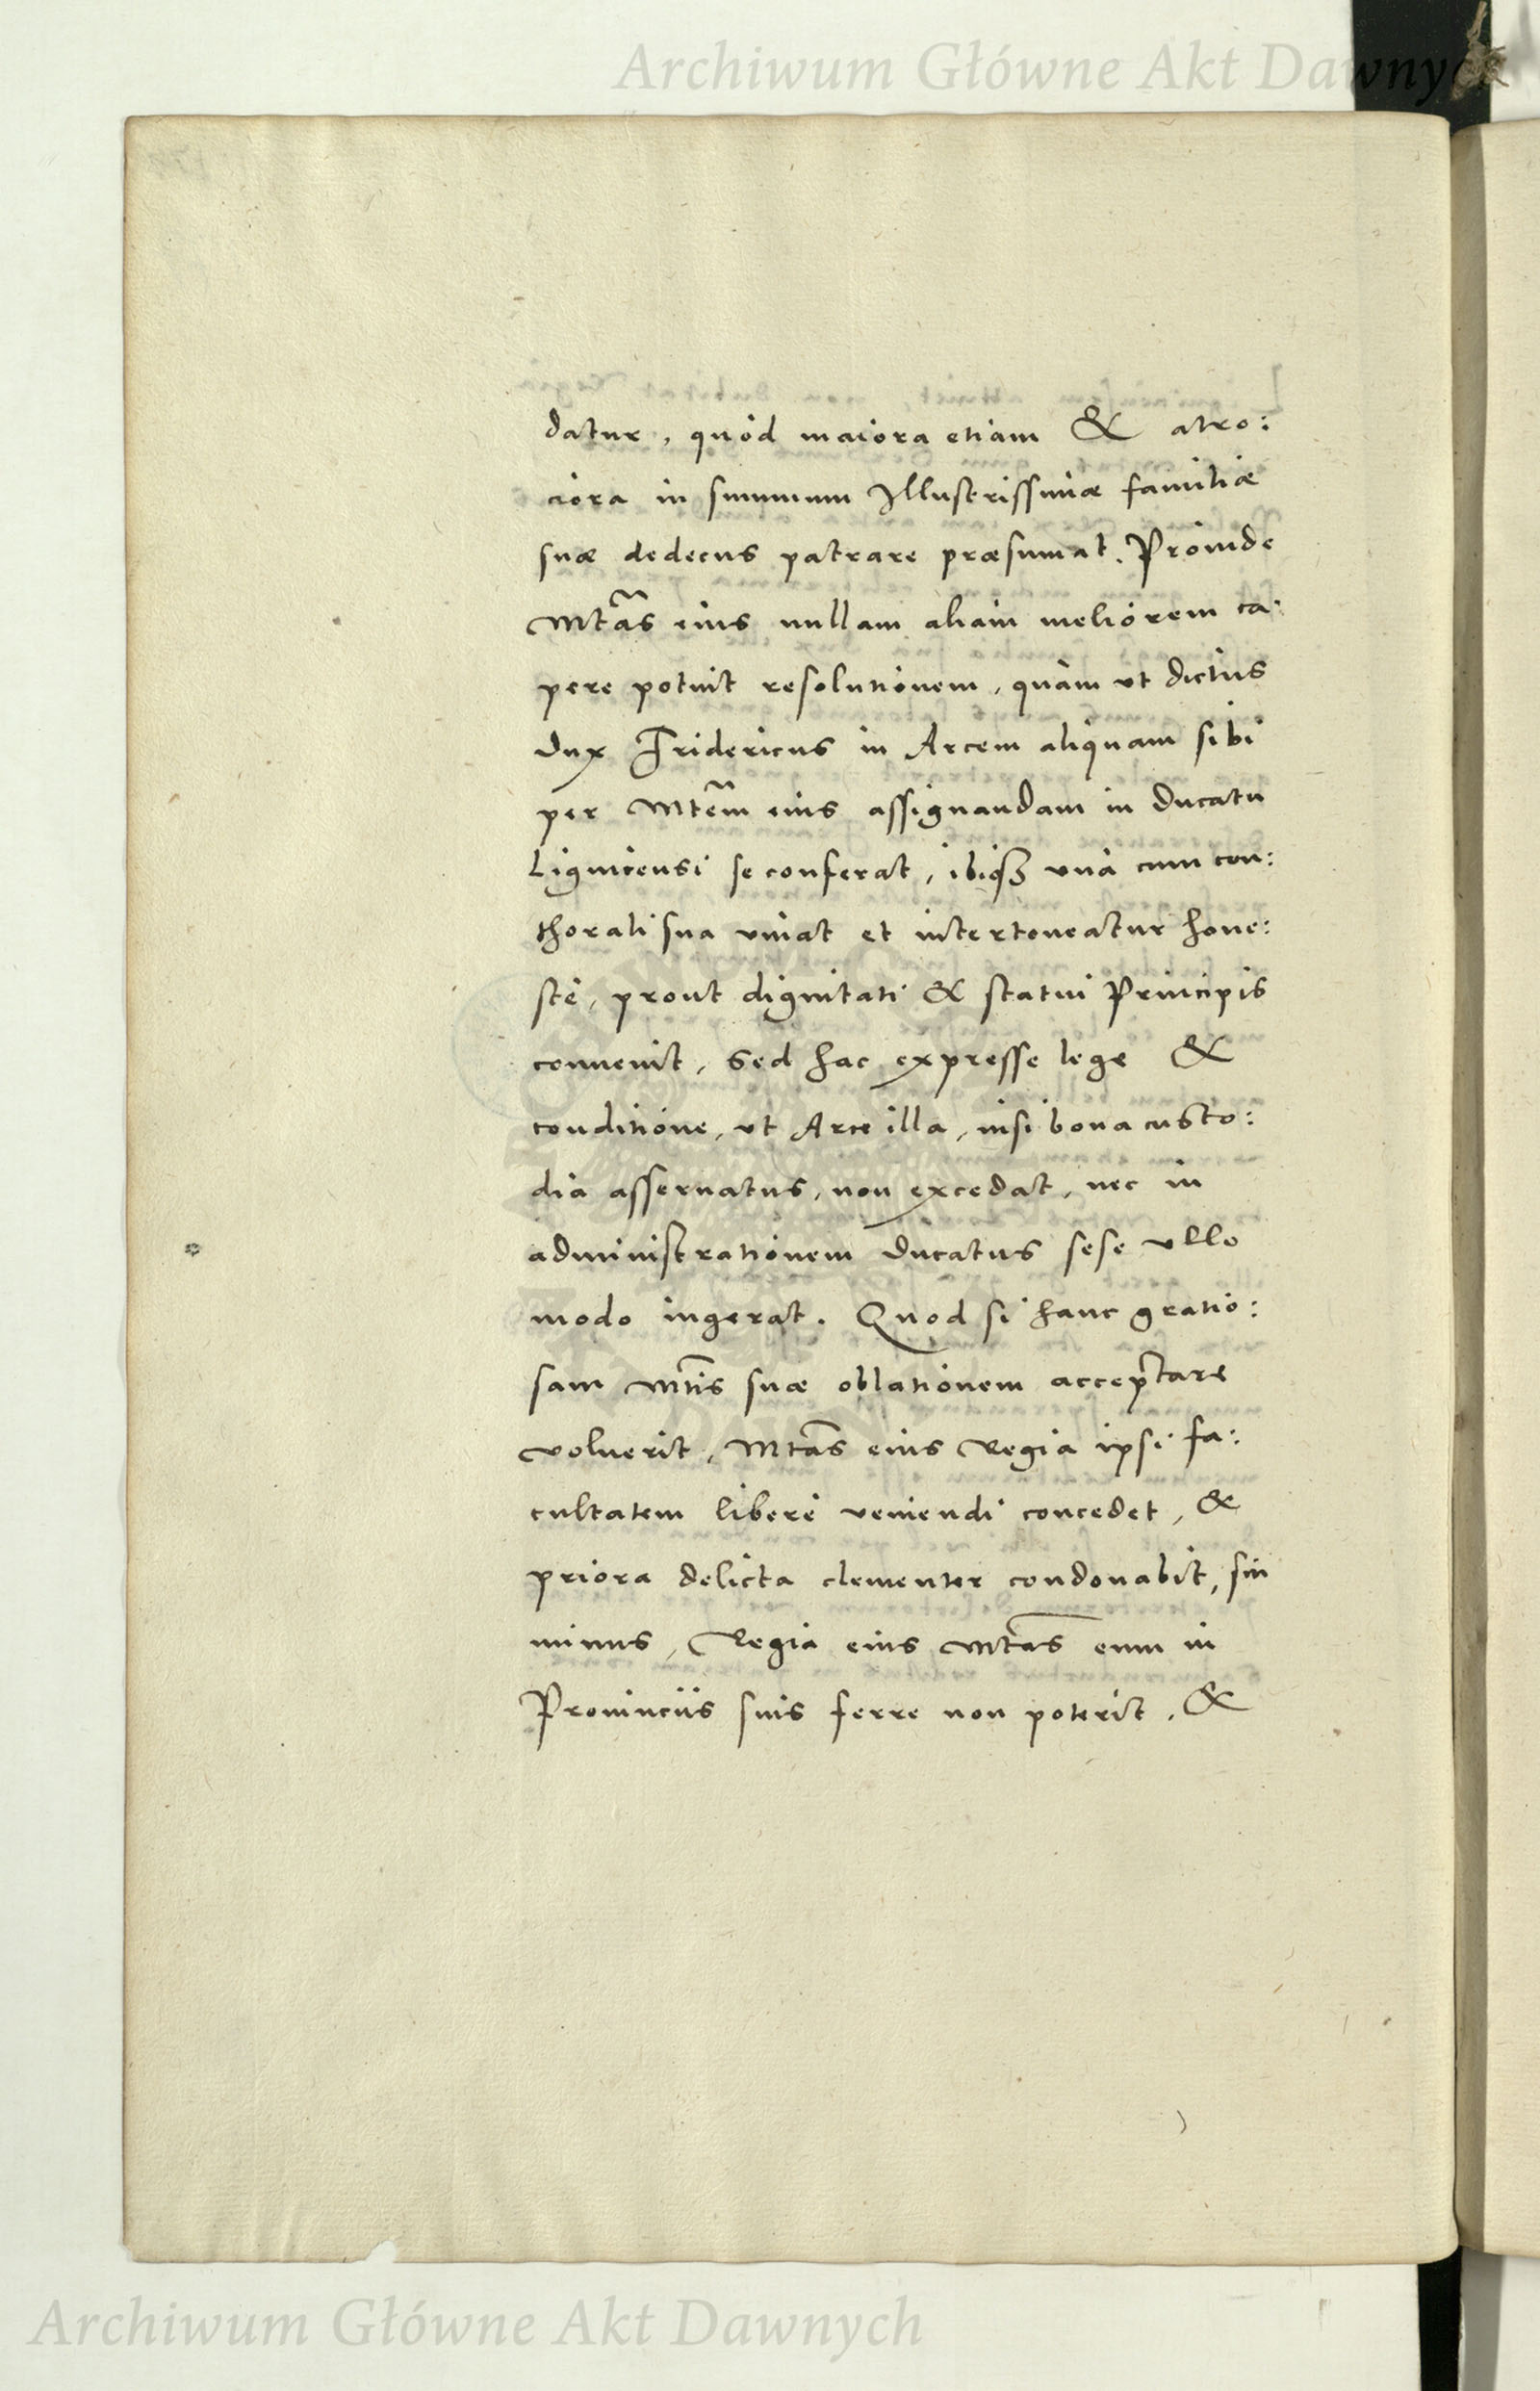 Archiwum Główne Akt Dawnych
datur, quòd maiora etiam & atro:
ciora in summum Illustrissimæ familiæ
suæ dedecus patrare præsumat. Proinde
Mtas eius nullam aliam meliorem ca:
pere potuit resolutionem, quàm vt dictus
Dux Fridericus in Arcem aliquam sibi
per Mtem eius assignandam in Ducatu
Lignicensi se conferat, ibiqз vnà cum con:
thorali sua viuat et interteneatur hone:
stè, prout dignitati & statui Principis
conuenit, sed hac expresse lege &
conditione, vt Arce illa, nisi bona custo:
dia asseruatus, non excedat, nec in
administrationem Ducatus sese vllo
modo ingerat. Quod si hanc gratio:
sam Mtis suæ oblationem acceptare
voluerit, Mtas eius Regia ipsi fa:
cultatem liberè veniendi concedet, &
priora delicta clementer condonabit, sin
minus, Regia eius Mtas eum in
Prouinciis suis ferre non poterit, &
Archiwum Główne Akt Dawnych